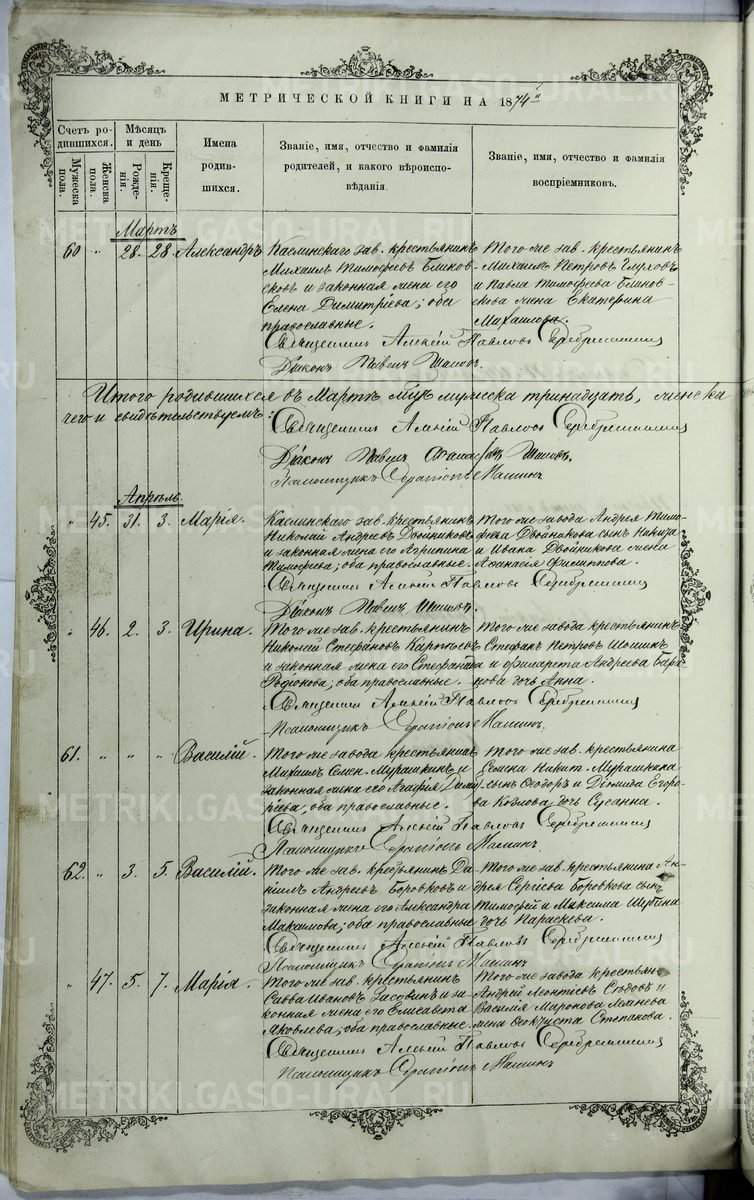 МЕТРИЧЕСКОЙ КНИГИ НА 1874
Счетъ ро-
дившихся.
Мужеска
пола.
Женска
пола.
Мѣсяцъ
и день
Рожде-
нія.
Креще-
нія.
Имена
родив-
шихся.
Званіе, имя, отчество и фамилія
родителей, и какого вѣроиспо-
вѣданія.
Званіе, имя, отчество и фамилія
воспріемниковъ.
Мартъ
60 „ 28. 28. Александръ
Каслинскаго зав. крестьянинъ
Михаилъ Тимофеевъ Блинов-
сковъ и законная жена его
Елена Димитріева; оба
православные.
Того же зав. крестьянинъ
Михаилъ Петровъ Глуховъ
и Павла Тимофеева Блинов-
скова жена Екатерина
Михаилова.
Священникъ Алексій Павловъ Серебренниковъ
Діаконъ Павелъ
Итого родившихся въ Мартѣ муж. мужеска тринадцать, женска
чего и свидѣтельствуемъ:
Священникъ Алексій Павловъ Серебренниковъ
Діаконъ Павелъ
Псаломщикъ Маминъ
Апрѣль.
„ 45. 31. 3. Марія.
Каслинскаго зав. крестьянинъ
Николай Андреевъ Двойниковъ
и законная жена его Агрипина
Тимофеева; оба православные.
Того же завода Андрея Тимо-
феева Двойникова сынъ
и Ивана Двойникова жена
Афанасія Филиппова.
Священникъ Алексій Павловъ Серебренниковъ
Діаконъ Павелъ
„ 46. 2. 3. Ирина.
Того же зав. крестьянинъ
Николай Стефановъ Карпаевъ
и законная жена его Стефанида
Родіонова; оба православные.
Того же завода крестьянинъ
Стефанъ Петровъ Шошинъ
и Филарета Андреева
дочь Анна.
Священникъ Алексій Павловъ Серебренниковъ
Псаломщикъ Маминъ.
61. „ „ „ Василій.
Того же завода крестьянинъ
Михаилъ Семен. Мурашкинъ и
законная жена его Агафія Дими-
тріева, оба православные.
Того же зав. крестьянина
Семена Никит. Мурашкина
сынъ Ѳеодоръ и Діомида Егоро-
ва Козлова дочь Сусанна.
Священникъ Алексій Павловъ Серебренниковъ
Псаломщикъ Маминъ.
62. „ 3. 5. Василій.
Того же зав. крестьянинъ Да-
ніилъ Андреевъ Боровковъ и
законная жена его Александра
Максимова; оба православные
Того же зав. крестьянина Ан-
дрея Сергіева Боровкова сынъ
Тимофей и Максима Шубина
дочь Параскева.
Священникъ Алексій Павловъ Серебренниковъ
Псаломщикъ Маминъ
„ 47. 5. 7. Марія.
Того же зав. крестьянинъ
Савва Ивановъ Засовинъ и за-
конная жена его Елисавета
Яковлева; оба православные
Того же завода крестьян.
Андрей Леонтіевъ Слѣдовъ и
Василія
жена Ѳеоктиста Степанова.
Священникъ Алексій Павловъ Серебренниковъ
Псаломщикъ Маминъ
METRIKI.GASO-URAL.RU